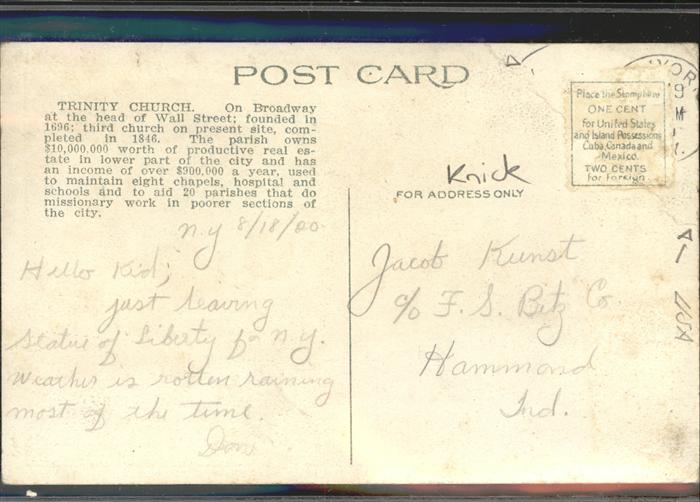 POST CARD
TRINITY CHURCH. On Broadway
at the head of Wall Street; founded in
1696; third church on present site, com-
pleted in 1846. The parish owns
$10,000,000 worth of productive real es-
tate in lower part of the city and has
an income of over $900,000 a year, used
to maintain eight chapels, hospital and
schools and to aid 20 parishes that do
missionary work in poorer sections of
the city.
N.Y 8/18/20
Hello Kid;
just leaving
Statue of Liberty for N.Y.
Weather is rotten raining
most of the time.
Don
Knick
FOR ADDRESS ONLY
Jacob Kunst
c/o F. S. Betz Co.
Hammond
Ind.
Place the Stamp here
ONE CENT
for United States
and Island Possessions
Cuba, Canada and
Mexico.
TWO CENTS
for Foreign.
USA